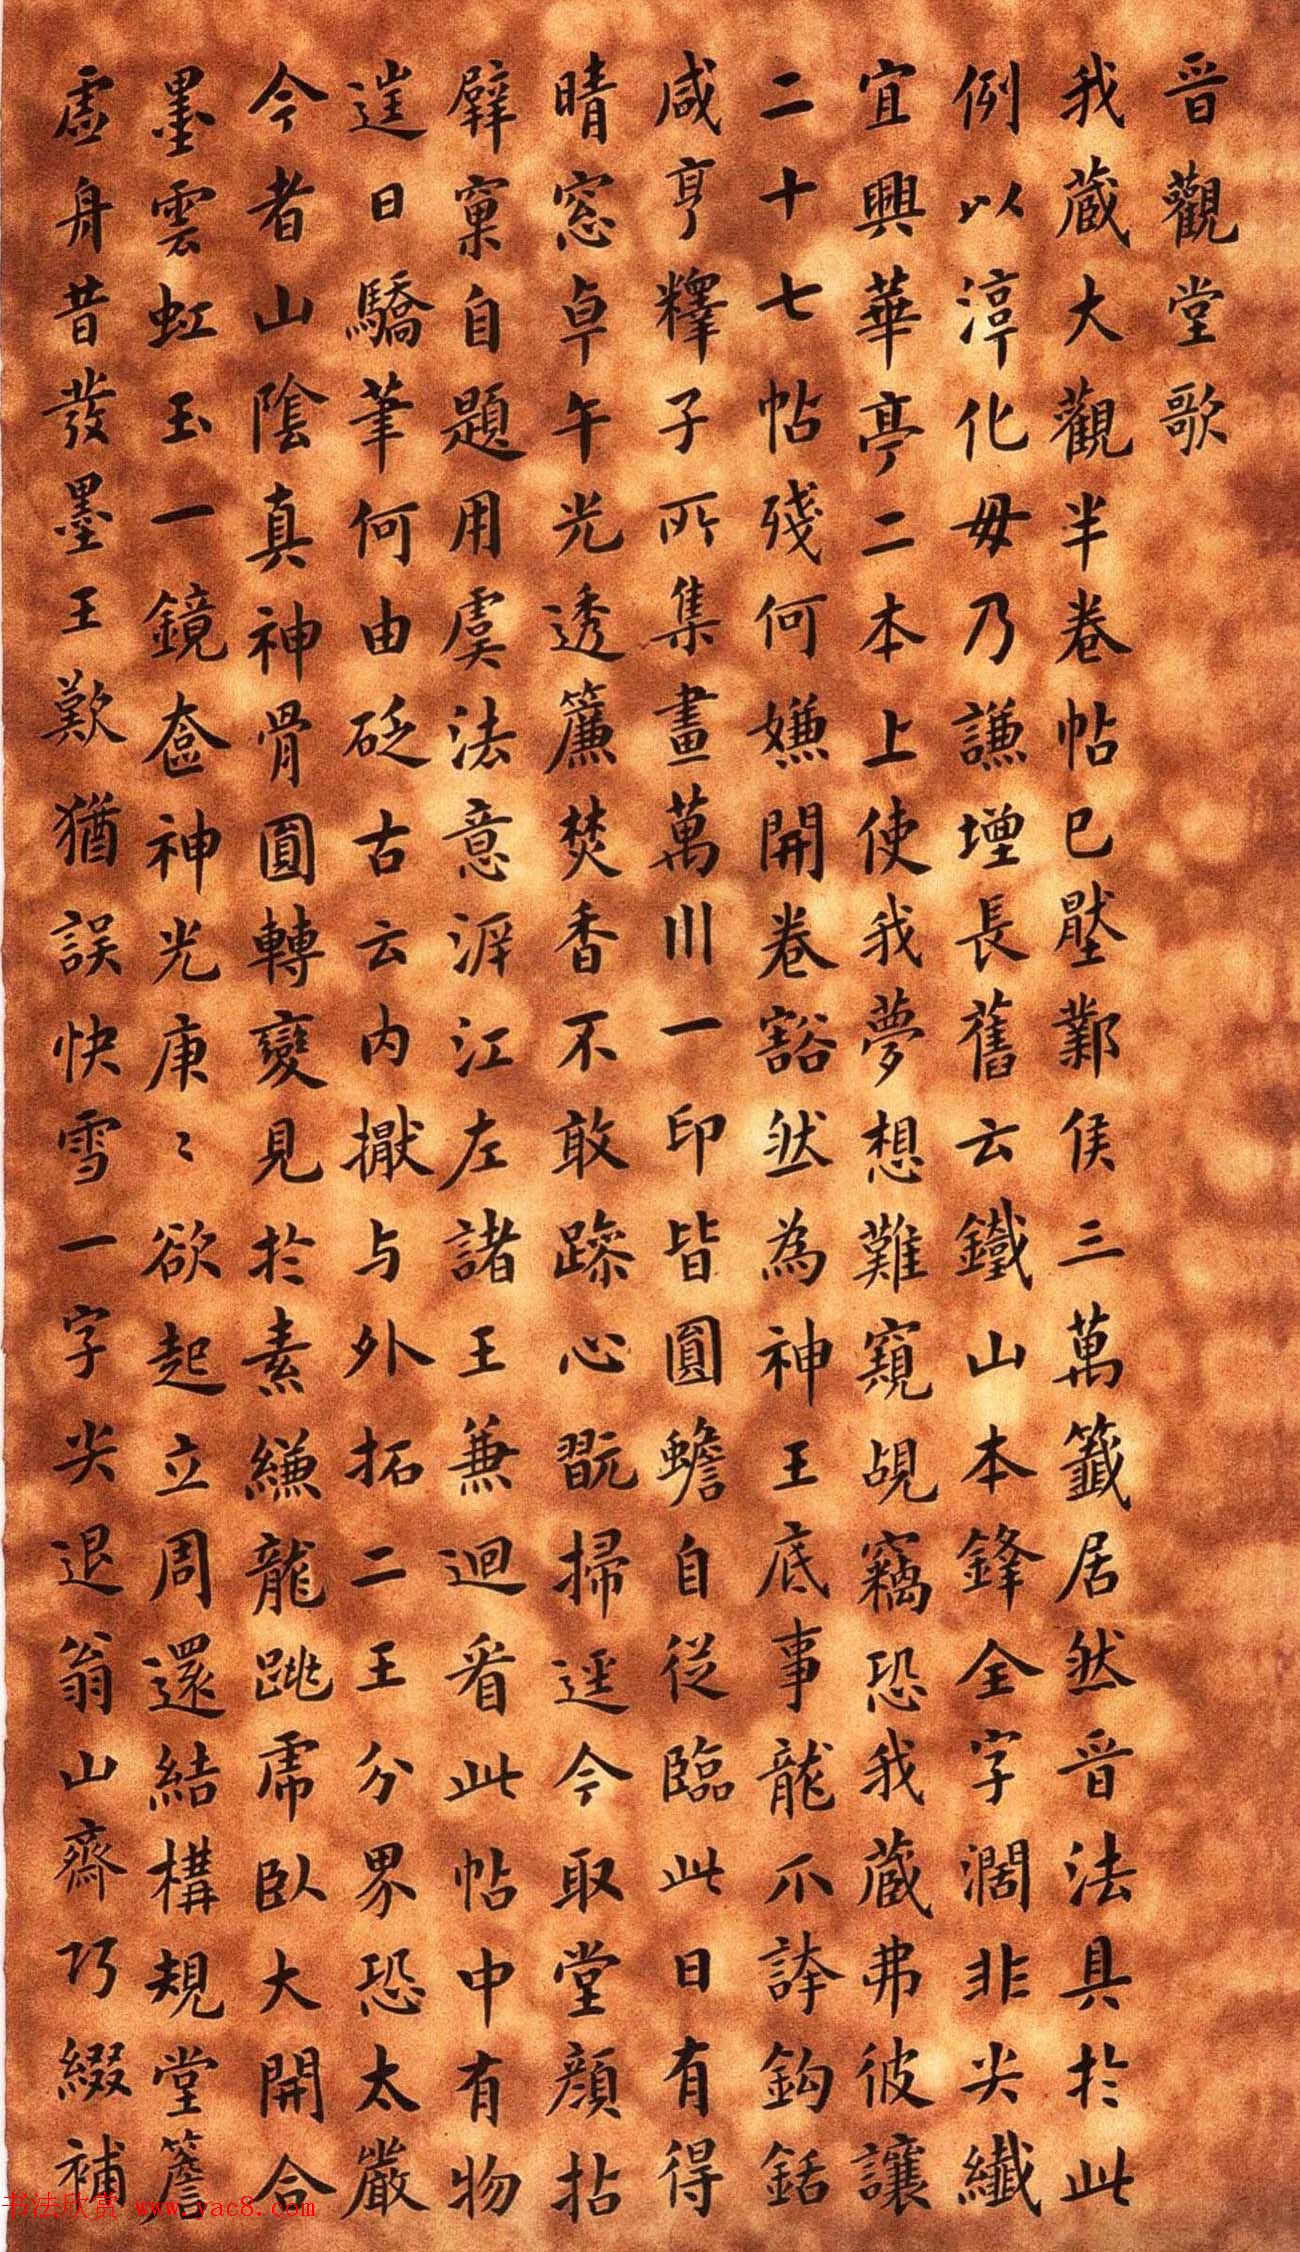 晉觀堂歌
我藏大觀半卷帖已壓鄴侯三萬籤居然晉法具於此
例以淳化毋乃謙增長舊云鐵山本鋒全字濶非尖纖
宜興華亭二本上使我夢想難窺覘竊恐我藏弗彼讓
二十七帖殘何嫌開卷豁然為神王底事龍爪誇鈎銛
咸亨釋子所集畫萬川一印皆圓蟾自從臨此日有得
晴窓卓午光透簾焚香不敢躁心翫掃逕今取堂顏拈
擘窠自題用虞法意泝江左諸王兼迴看此帖中有物
逞日驕筆何由砭古云内擫与外拓二王分界恐太嚴
今者山陰真神骨圓轉變見於素縑龍跳虎臥大開合
墨雲虹玉一鏡奩神光庚〻欲起立周還結構規堂簷
虛舟昔發墨王歎猶誤快雪一字尖退翁山齋巧綴補
书法欣赏 www.yac8.com